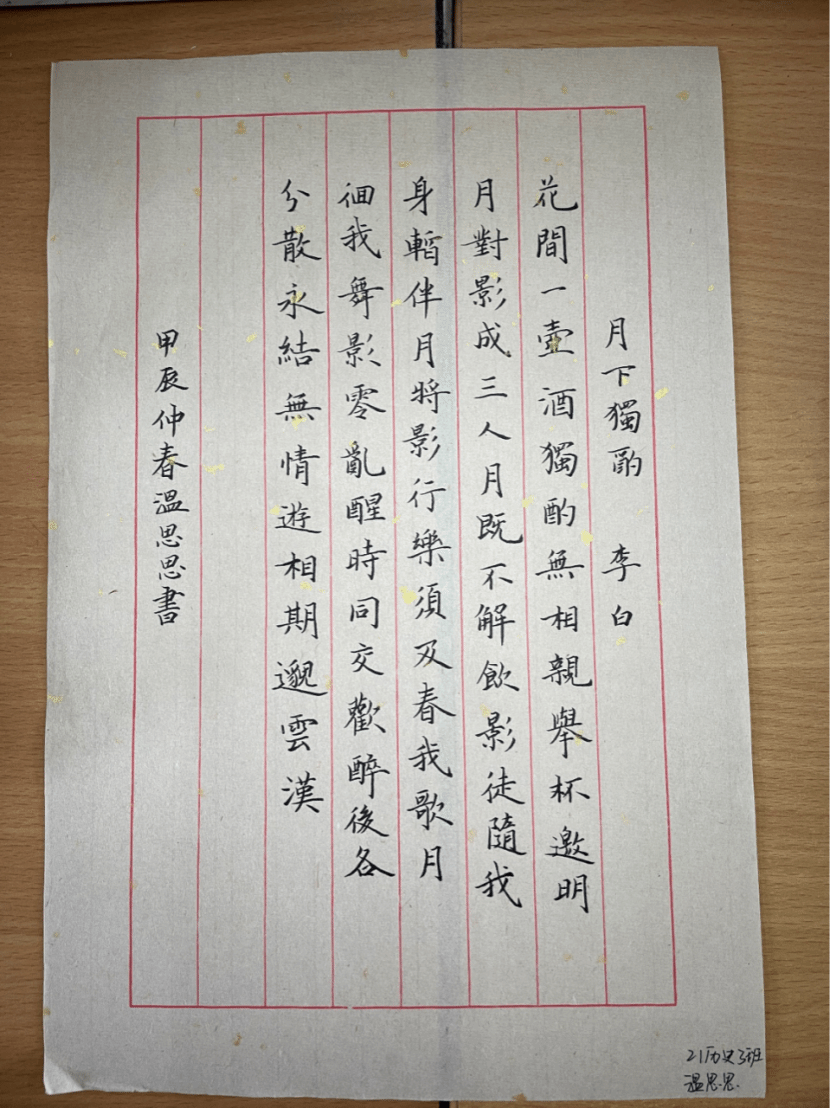 月下獨酌 李白
花間一壺酒獨酌無相親舉杯邀明
月對影成三人月既不解飲影徒隨我
身暫伴月將影行樂須及春我歌月
徊我舞影零亂醒時同交歡醉後各
分散永結無情遊相期邈雲漢
甲辰仲春溫思思書
21历史3班
溫思思